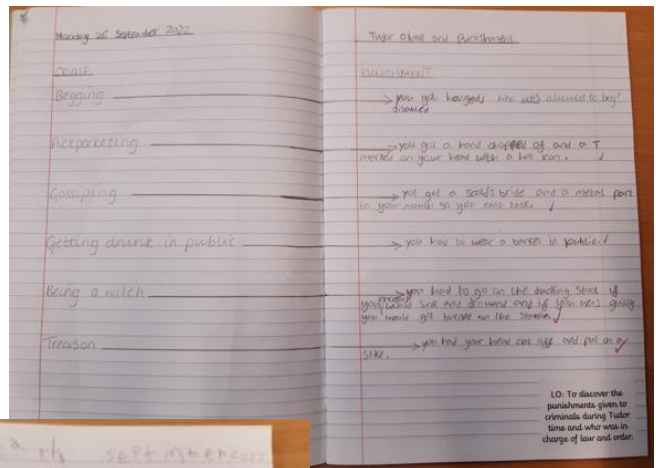 Monday 26 September 2022
CRIME
Begging
Pickpocketing
Gossiping
Getting drunk in public
Being a witch
Treason
Tudor crime and punishment
PUNISHMENT
you got hanged who was allowed to beg?
disabled
you got a hand chopped of and a T
marked on your head with a hot iron.
you got a bride and a metal part
in your so you cant
you had to wear a barrel in public.
you had to go on the ducking stool if
you would sink and and if you were guilty
you would get burned on the
you had your head cut off and put on a
LO: To discover the
punishments given to
criminals during Tudor
time and who was in
charge of law and order.